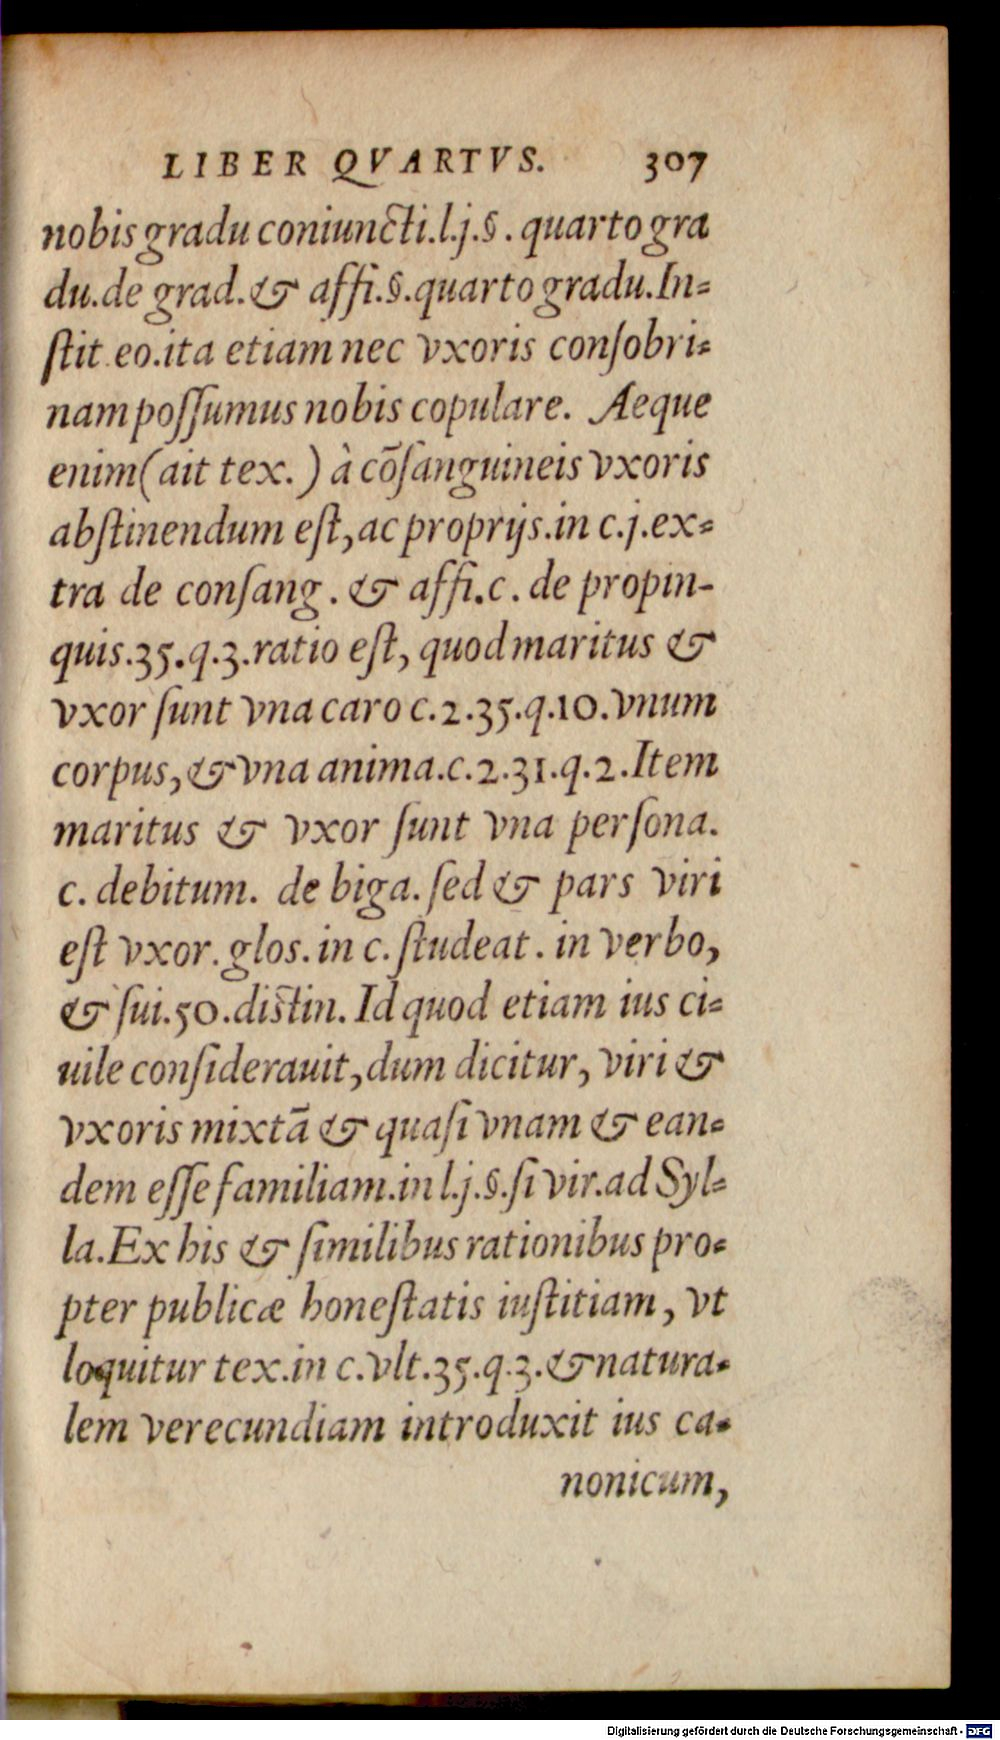 LIBER QVARTVS. 307
nobis gradu coniuncti.l.j.§. quarto gra
du.de grad.& affi.§.quarto gradu.In=
ſtit eo.ita etiam nec vxoris conſobri=
nam poſſumus nobis copulare. Aeque
enim(ait tex.) à cõſanguineis vxoris
abſtinendum eſt,ac proprijs.in c.j.ex=
tra de conſang. & affi.c. de propin-
quis.35.q.3.ratio eſt, quod maritus &
vxor ſunt vna caro c.2.35.q.10.vnum
corpus,& vna anima.c.2.31.q.2.Item
maritus & vxor ſunt vna perſona.
c. debitum. de biga. ſed & pars viri
eſt vxor. glos. in c. ſtudeat. in verbo,
& ſui.50.diſtin. Id quod etiam ius ci=
uile conſiderauit,dum dicitur, viri &
vxoris mixtã & quaſi vnam & ean=
dem eſſe familiam.in l.j.§.ſi vir.ad Syl=
la.Ex his & ſimilibus rationibus pro=
pter publicæ honeſtatis iuſtitiam, vt
loquitur tex.in c.vlt.35.q.3.& natura=
lem verecundiam introduxit ius ca=
nonicum,
Digitalisierung gefördert durch die Deutsche Forschungsgemeinschaft - DFG